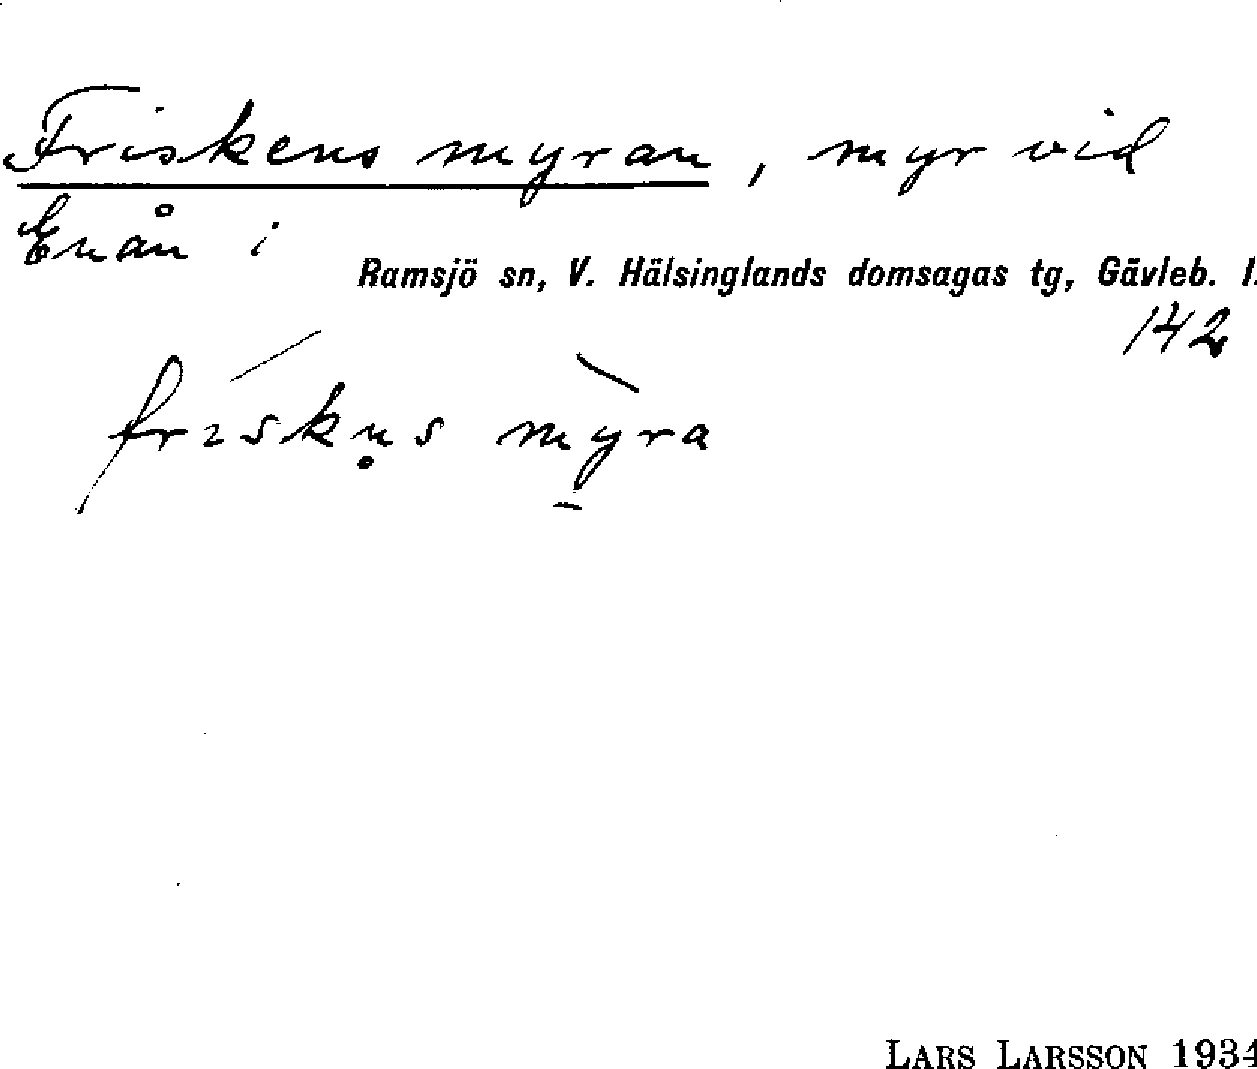 Friskens myran, myr vid
Enån i
Ramsjö sn, V. Hälsinglands domsagas tg, Gävleb. l.
142
frɪskn̥s myra
LARS LARSSON 1934